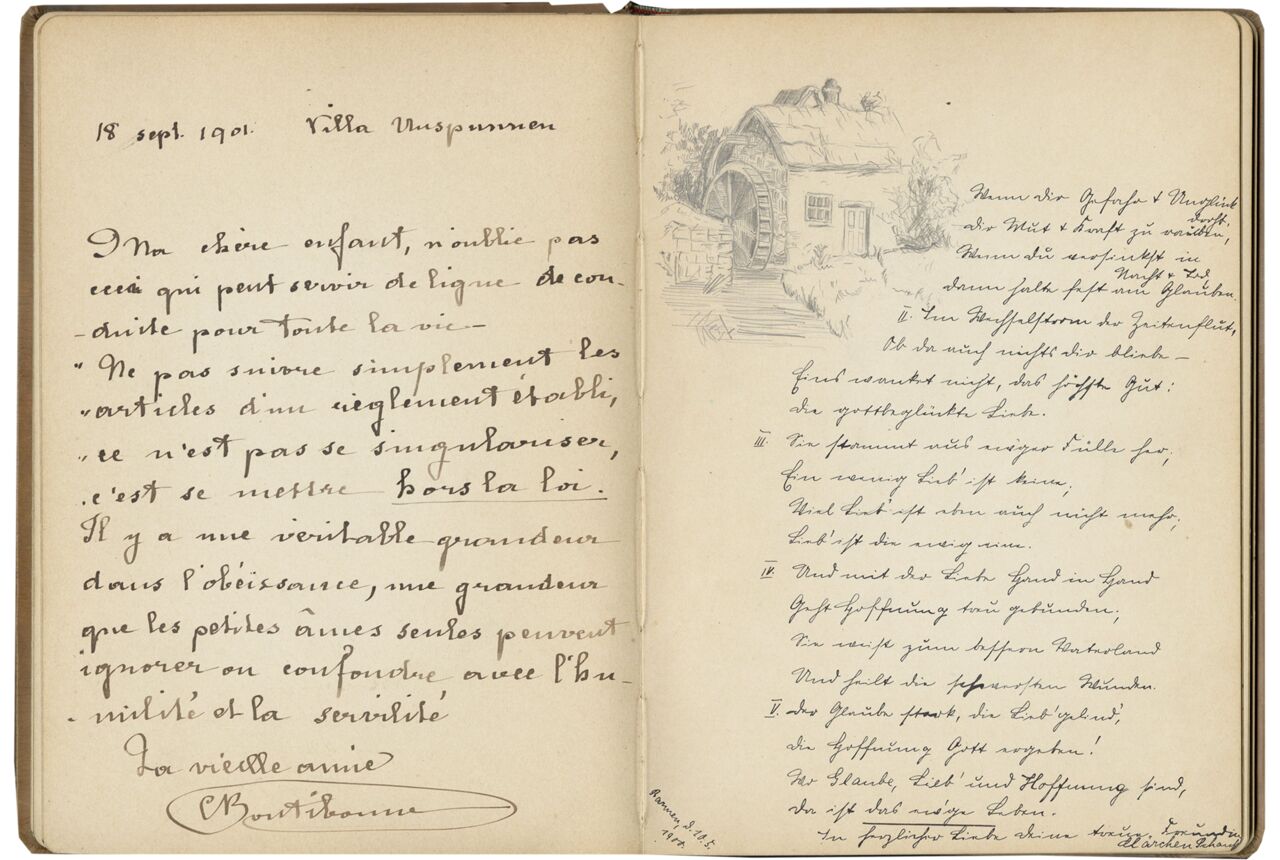 18 sept. 1901. Villa Unspunnen
Ma chère enfant, n'oublie pas
ceci qui peut servir de ligne de con-
-duite pour toute la vie -
" Ne pas suivre simplement les
" articles d'un règlement établi,
" ce n'est pas se singulariser,
" c'est se mettre hors la loi.
Il y a une véritable grandeur
dans l'obéissance, une grandeur
que les petites âmes seules peuvent
ignorer ou confondre avec l'hu-
- milité et la servilité
Ta vieille amie
Wenn dir Gefahr & Unglück
droht,
dir Mut & Kraft zu rauben,
Wenn du versinkst in
Nacht & Tod
dann halte fest am Glauben.
II. Im Wechselstrom der Zeitenflut,
Ob da auch nichts dir bliebe –
Eins wanket nicht, das höchste Gut:
die gottbeglückte Liebe.
III. Sie stammt aus ew'ger Fülle her,
Ein wenig Lieb' ist keine;
Viel Lieb' ist eben auch nicht mehr;
Lieb' ist die ewig eine.
IV. Und mit der Liebe Hand in Hand
Geht Hoffnung treu gebunden;
Sie weist zum bessern Vaterland
Und heilt die schwersten Wunden.
V. Der Glaube stark, die Lieb' gelind',
die Hoffnung Gott ergeben!
Wo Glaube, Lieb' und Hoffnung sind,
Da ist das ew'ge Leben.
In herzlicher Liebe deine treue Freundin
Clärchen
Barmen, d. 10.5.